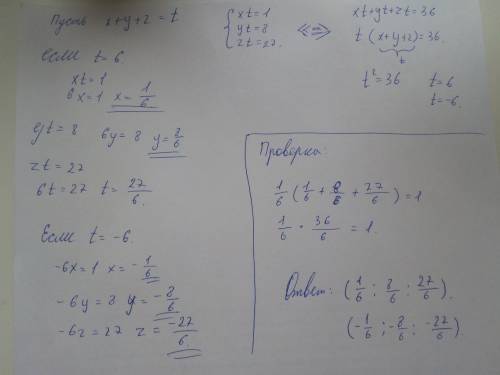 Пусть x+y+z = t
{ xt=1
yt=8
zt=27.
<=>
xt+yt+zt=36
t(x+y+z)=36.
t
t²=36 t=6
t=-6.
если t=6.
xt=1
6x=1 x=1/6
yt=8 6y=8 y=8/6
zt=27
6t=27 t=27/6.
Если t=-6.
-6x=1 x=-1/6
-6y=8 y=-8/6
-6z=27 z=-27/6.
Проверка:
1/6(1/6+8/6+27/6)=1
1/6·36/6=1.
Ответ: (1/6; 8/6; 27/6).
(-1/6; -8/6; -27/6).